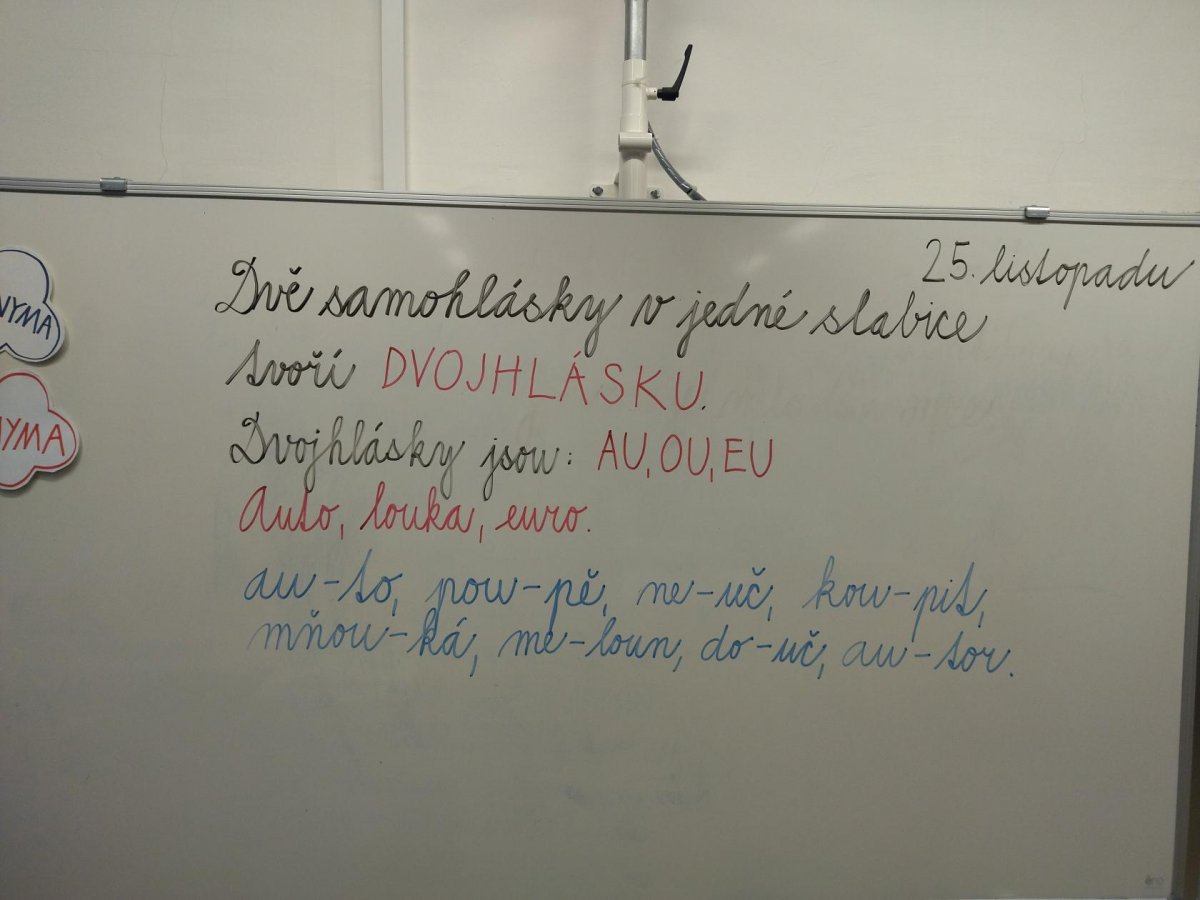 25. listopadu
Dvě samohlásky v jedné slabice
tvoří DVOJHLÁSKU.
Dvojhlásky jsou: AU, OU, EU
Auto, louka, euro.
au-to, pou-pě, ne-uč, kou-pit,
mňou-ká, me-loun, do-uč, au-tor.
YMA
YMA